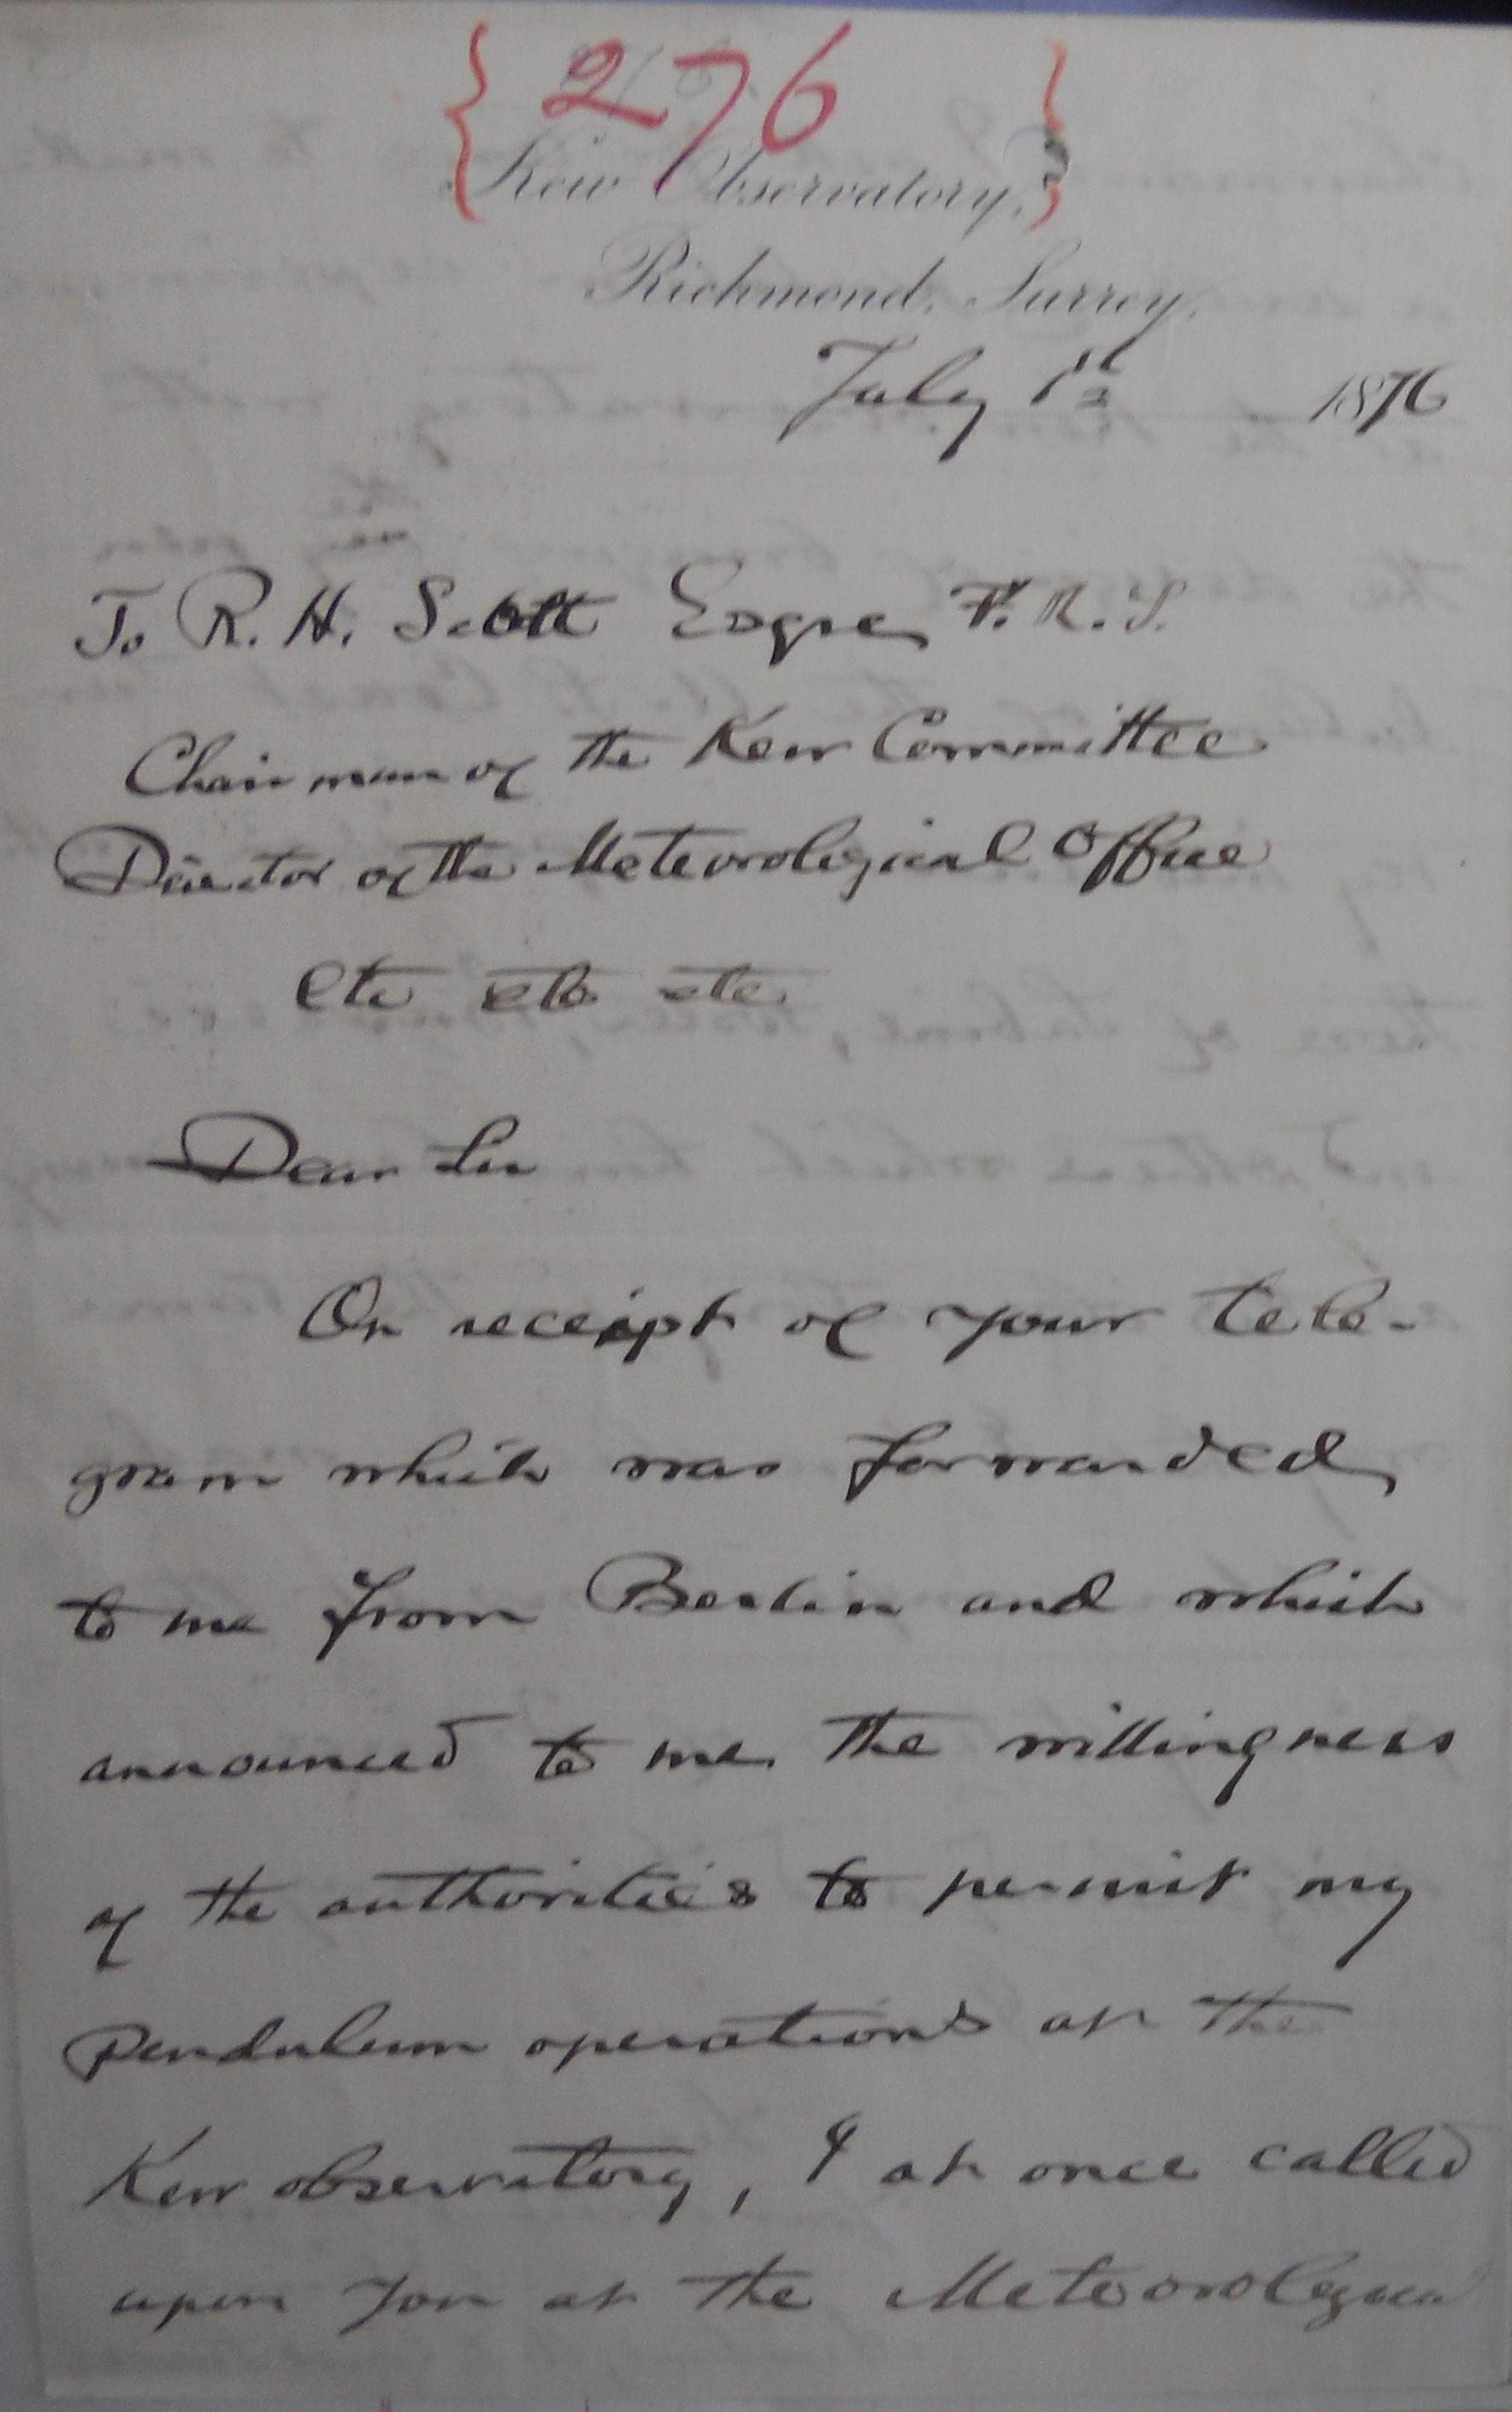 276
Kew Observatory,
Richmond, Surrey.
July 1st 1876
To R. H. Scott Esqre F.R.S.
Chairman of the Kew Committee
Director of the Meteorological Office
etc etc etc
Dear Sir
On receipt of your tele-
gram which was forwarded
to me from Berlin and which
announced to me the willingness
of the authorities to permit my
Pendulum operations at the
Kew observatory, I at once called
upon you at the Meteorological